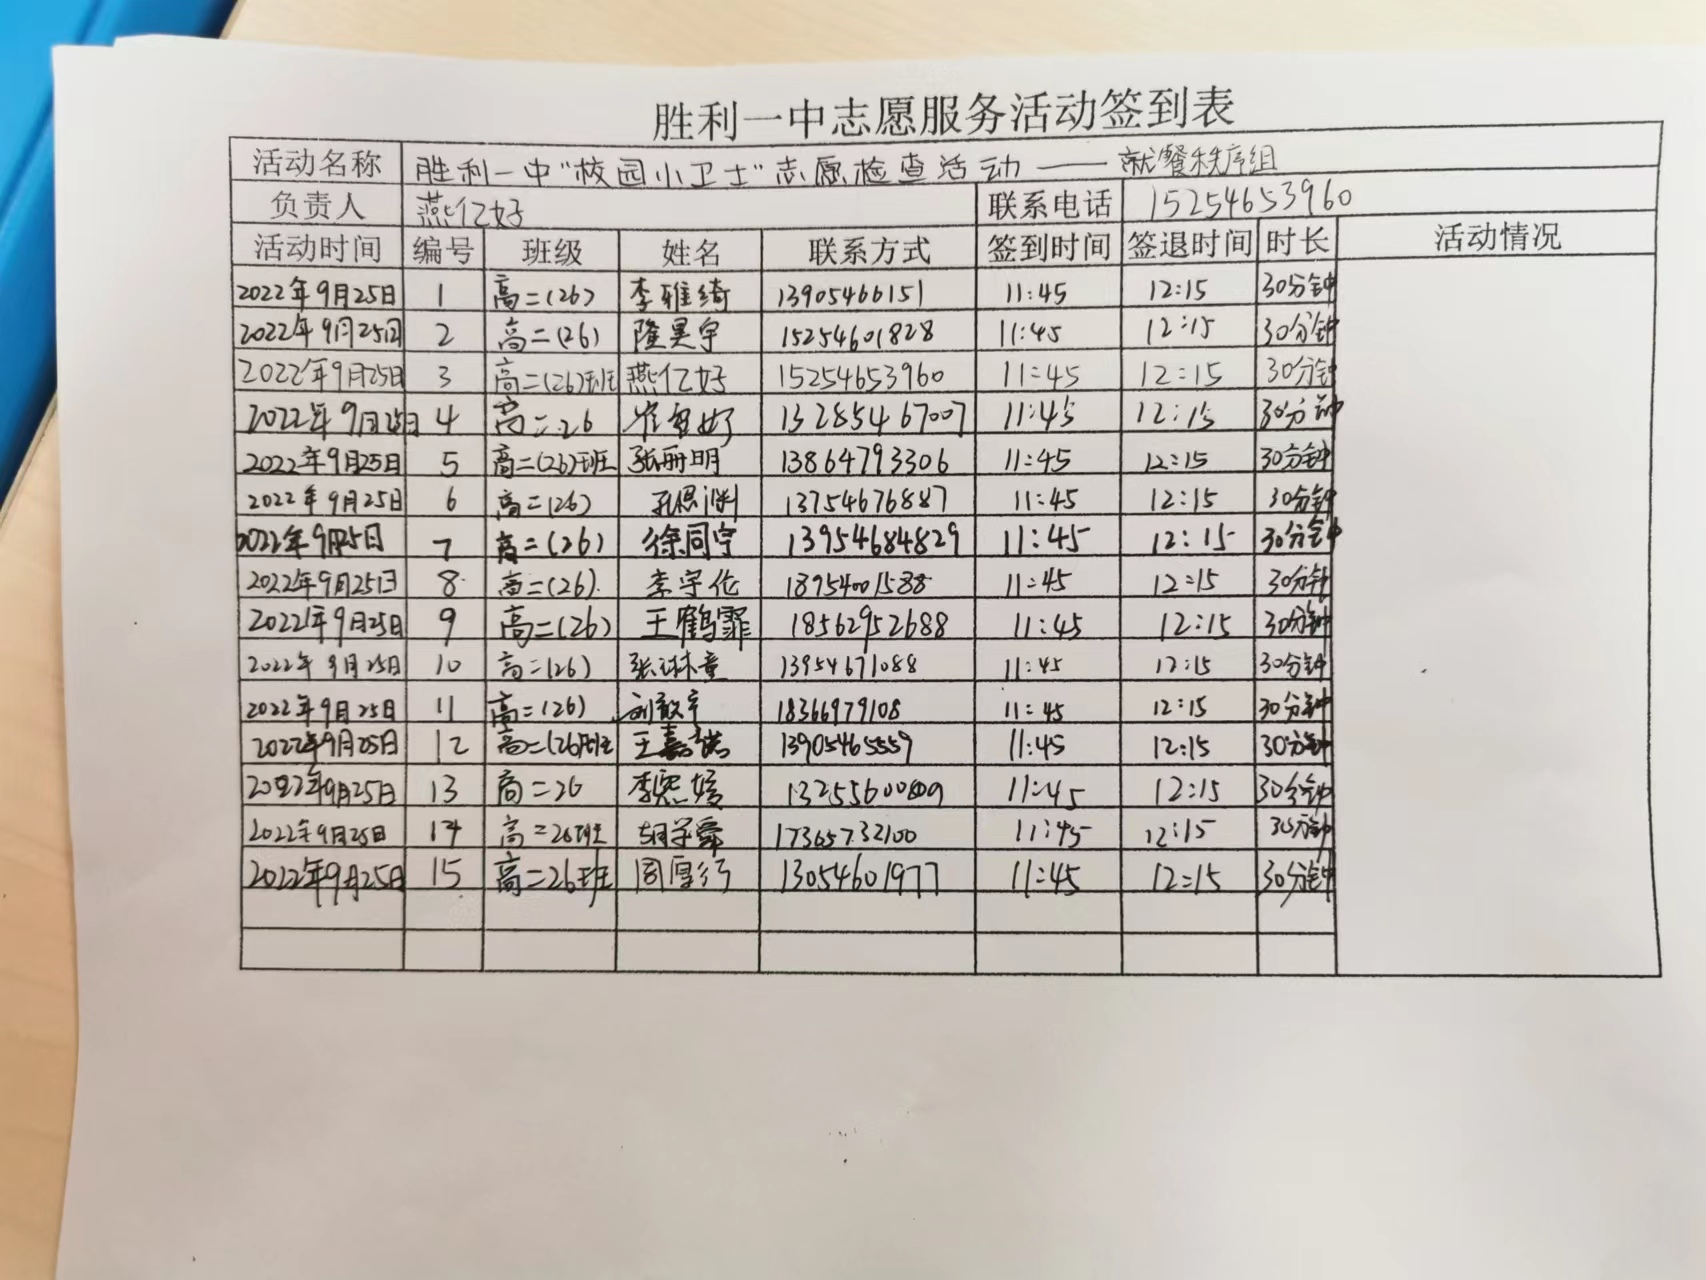 胜利一中志愿服务活动签到表
活动名称 胜利一中"校园小卫士"志愿检查活动——就餐秩序组
负责人 燕亿好 联系电话 15254653960
活动时间 编号 班级 姓名 联系方式 签到时间 签退时间 时长 活动情况
2022年9月25日 1 高二(26) 李雅绮 13905466151 11:45 12:15 30分钟
2022年9月25日 2 高二(26) 隆昊宇 15254601828 11:45 12:15 30分钟
2022年9月25日 3 高二(26)班 燕亿好 15254653960 11:45 12:15 30分钟
2022年9月25日 4 高二.26 崔智好 13285467007 11:45 12:15 30分钟
2022年9月25日 5 高二(26)班 张册明 13864793306 11:45 12:15 30分钟
2022年9月25日 6 高二(26) 孔思渊 13754676887 11:45 12:15 30分钟
2022年9月25日 7 高二(26) 徐同宇 13954684829 11:45 12:15 30分钟
2022年9月25日 8 高二(26) 李宇伦 11:45 12:15 30分钟
2022年9月25日 9 高二(26) 王鹤霏 18562952688 11:45 12:15 30分钟
2022年9月25日 10 高二(26) 张琳童 13954671088 11:45 12:15 30分钟
2022年9月25日 11 高二(26) 18366979108 11:45 12:15 30分钟
2022年9月25日 12 高二(26)班 13905465559 11:45 12:15 30分钟
2022年9月25日 13 高二26 11:45 12:15 30分钟
2022年9月25日 14 高二26班 胡学舜 17365732100 11:45 12:15 30分钟
2022年9月25日 15 高二26班 周厚行 13054601977 11:45 12:15 30分钟